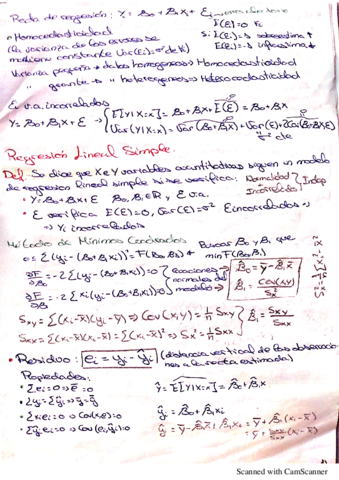 Recta de regresión: Y = β0 + β1X + Ei
• Homocedasticidad
(la varianza de los errores se
mantiene constante Var(Ei)=σ² ∀i)
Varianza pequeña + datos homogéneos → Homocedasticidad
" grande + " heterogéneos → Heterocedasticidad
E v.a. incorrelados
Y = β0 + β1X + E
E[Y|X=x] = β0 + β1x + E(E) = β0 + β1x
Regresión Lineal Simple.
Def: Se dice que X e Y variables cuantitativas siguen un modelo
de regresión lineal simple si se verifica: Normalidad + Incorrelada → Indep
• Y = β0 + β1X + E β0, β1 ∈ ℝ y E v.a.
• E verifica E(E)=0, Var(E)=σ² E incorrelados →
→ Yi incorrelados
Método de Mínimos Cuadrados Buscar β0 y β1 que
0 ≤ Σ(yi-(β0+β1xi))² = F(β0,β1) min F(β0,β1)
∂F/∂β0 = -2Σ(yi-(β0+β1xi))=0 ecuaciones β̂0 = ȳ - β̂1x̄
normales del
∂F/∂β1 = -2Σxi(yi-(β0+β1xi))=0 modelo β̂1 = cov(x,y)/Sx²
Sxy = Σ(xi-x̄)(yi-ȳ) ⇒ Cov(x,y) = 1/n Sxy β̂1 = Sxy/Sxx
Sxx = Σ(xi-x̄)(xi-x̄) = Σ(xi-x̄)² ⇒ Sx² = 1/n Sxx
• Residuo: ei = yi - ŷi (distancia vertical de las observaciones
a la recta estimada)
Propiedades:
• Σei=0 ⇒ ē=0
• Σyi = Σŷi ⇒
• Σxiei=0 ⇒ Cov(x,e)=0
• Σŷiei=0 ⇒ Cov(ŷ,e)=0
ŷ = E[Y|X=x] = β̂0 + β̂1x
ŷi = β̂0 + β̂1xi
ŷi = ȳ - β̂1x̄ + β̂1xi = ȳ + β̂1(xi-x̄)
= ȳ + Sxy/Sxx (xi-x̄)
Scanned with CamScanner